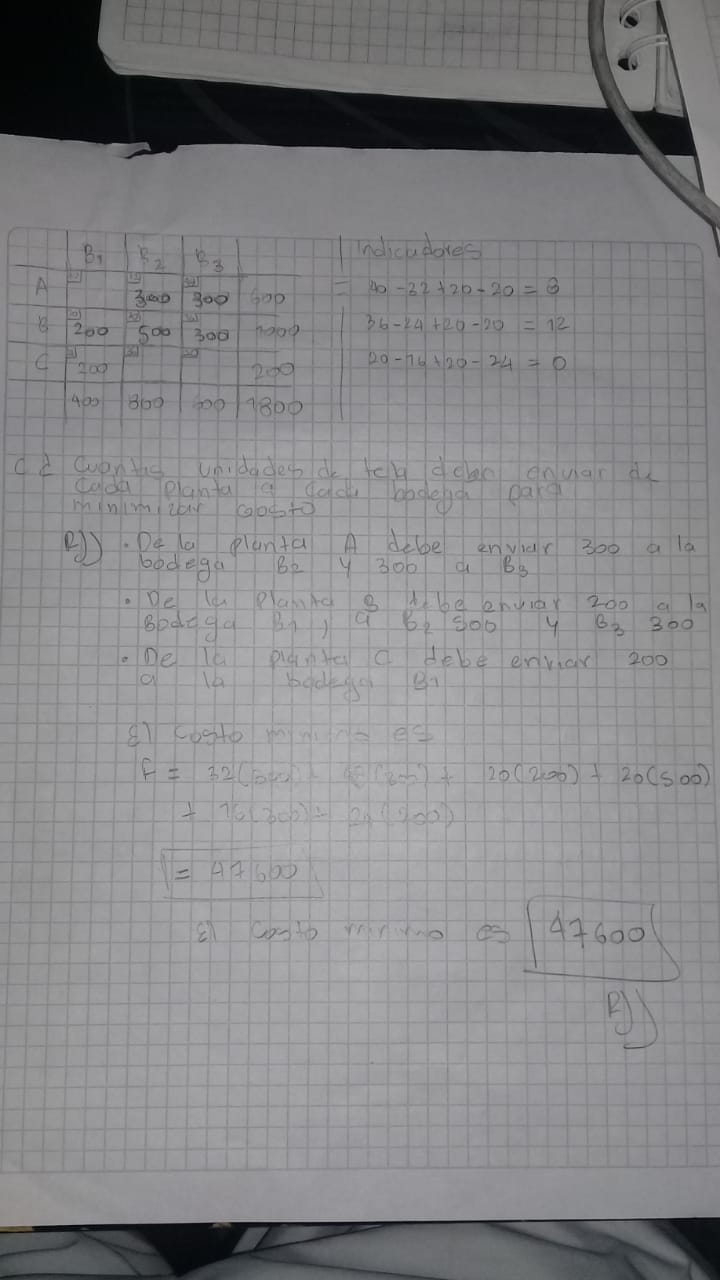 B1 B2 B3 Indicadores
A 300 300 600 = 40 - 32 + 20 - 20 = 8
B 200 500 300 1000 36 - 24 + 20 - 20 = 12
C 200 200 20 - 16 + 20 - 24 = 0
400 800 600 1800
unidades de tela deben enviar de
cada planta a cada bodega para
minimizar costo
R)) • De la planta A debe enviar 300 a la
bodega B2 y 300 a B3
• De la planta B debe enviar 200 a la
Bodega B1, a B2 500 y B3 300
• De la planta C debe enviar 200
a la bodega B1
El costo minimo es
F = 32(300) + (300) + 20(200) + 20(500)
+ 16(300) + 24(200)
= 47600
El costo minimo es 47600
R))